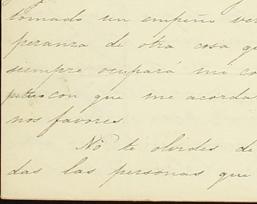 tomado un empeño ver
peranza de otra cosa qu
siempre ocupará mi co
con que me acorda
nos favores.
No te olvides de
das las personas que